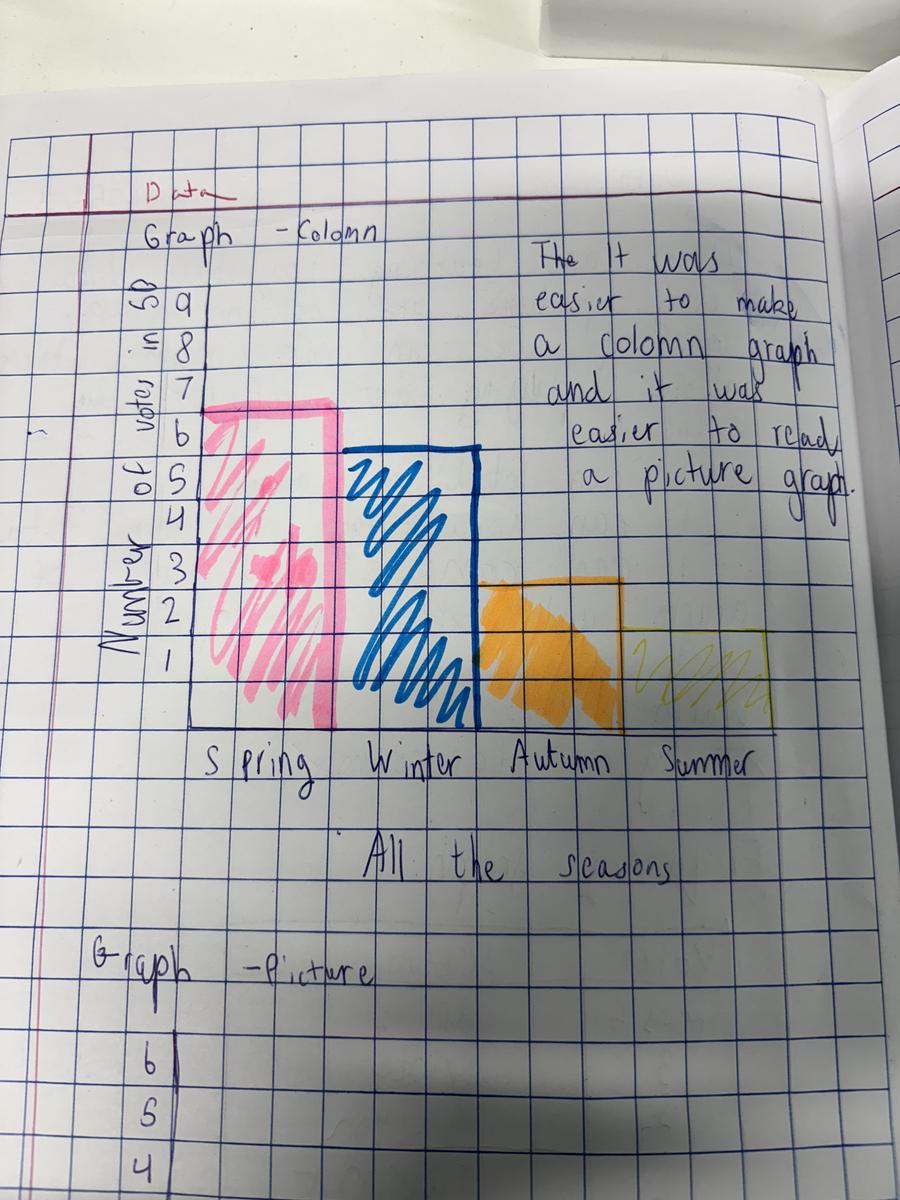 Data
Graph - Colomn
Number of votes in 5P
9
8
7
6
5
4
3
2
1
The It was
easier to make
a colomn graph
and it was
easier to read
a picture graph.
Spring Winter Autumn Summer
All the seasons
Graph - Picture
6
5
4